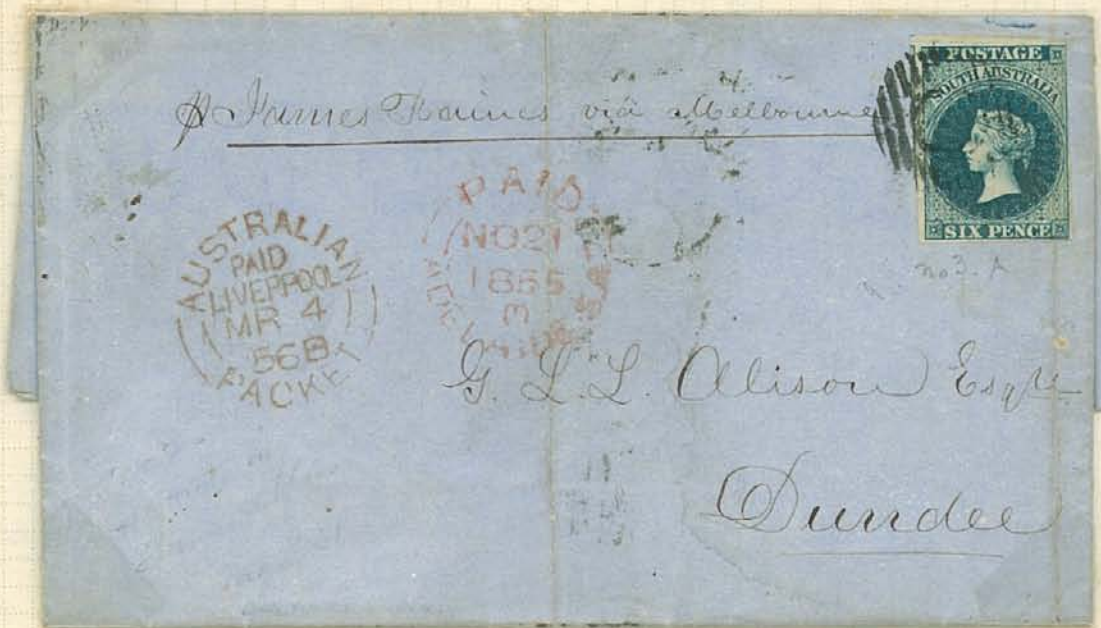 p James Baines via Melbourne
POSTAGE
SOUTH AUSTRALIA
SIX PENCE
no 3. A
AUSTRALIAN
PAID
LIVERPOOL
MR 4
56 B
PACKET
PAID
NO 21
1855
3
G. L. L. Alison Esqre
Dundee